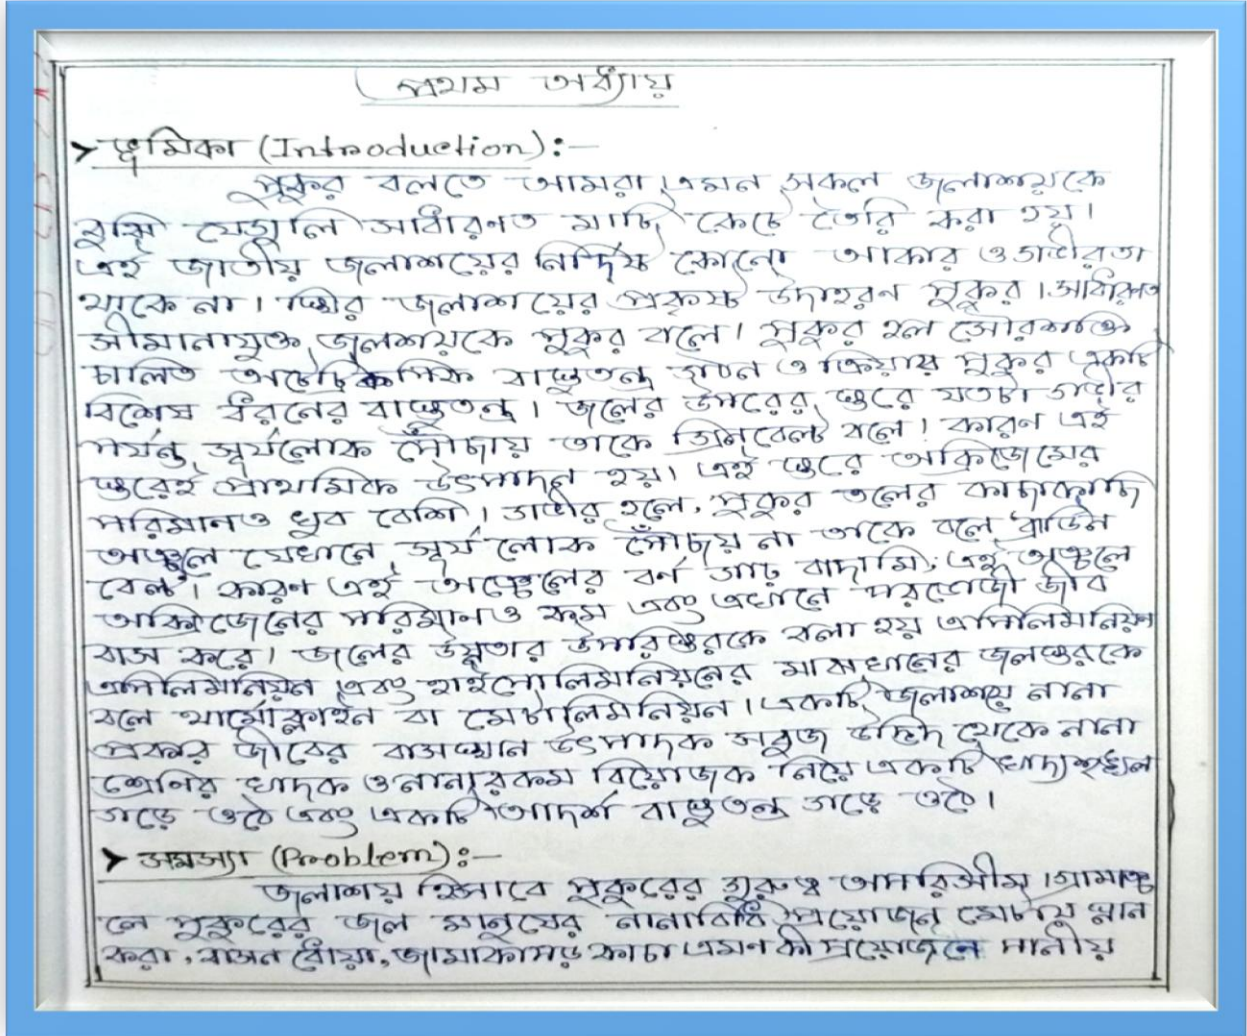 প্রথম অধ্যায়
➤ ভূমিকা (Introduction):-
পুকুর বলতে আমরা এমন সকল জলাশয়কে
বুঝি যেগুলি সাধারণত মাটি কেটে তৈরি করা হয়।
এই জাতীয় জলাশয়ের নির্দিষ্ট কোনো আকার ও গভীরতা
থাকে না। স্থির জলাশয়ের প্রকৃষ্ট উদাহরণ পুকুর। সাধারণত
সীমানাযুক্ত জলাশয়কে পুকুর বলে। পুকুর হল সৌরশক্তি
চালিত বাস্তুতন্ত্র গঠন ও ক্রিয়ায় পুকুর একটি
বিশেষ ধরনের বাস্তুতন্ত্র। জলের উপরের স্তরে যতটা গভীর
পর্যন্ত সূর্যলোক পৌঁছায় তাকে গ্রিনবেল্ট বলে। কারণ এই
স্তরেই প্রাথমিক উৎপাদন হয়। এই স্তরে অক্সিজেনের
পরিমানও খুব বেশি। গভীর হলে, পুকুর তলের কাছাকাছি
অঞ্চলে যেখানে সূর্য লোক পৌঁছয় না তাকে বলে ব্রাউন
বেল্ট। কারণ এই অঞ্চলের বর্ণ গাঢ় বাদামি; এই অঞ্চলে
অক্সিজেনের পরিমানও কম এবং এখানে পরভোজী জীব
বাস করে। জলের উষ্ণতার উপরিস্তরকে বলা হয় এপিলিমনিয়ন
এপিলিমনিয়ন এবং হাইপোলিমনিয়নের মাঝখানের জলস্তরকে
বলে থার্মোক্লাইন বা মেটালিমনিয়ন। একটি জলাশয়ে নানা
প্রকার জীবের বাসস্থান উৎপাদক সবুজ উদ্ভিদ থেকে নানা
শ্রেণির খাদক ও নানারকম বিয়োজক নিয়ে একটি খাদ্যশৃঙ্খল
গড়ে ওঠে এবং একটি আদর্শ বাস্তুতন্ত্র গড়ে ওঠে।
➤ সমস্যা (Problem):-
জলাশয় হিসাবে পুকুরের গুরুত্ব অপরিসীম। গ্রামাঞ্চ
লে পুকুরের জল মানুষের নানাবিধ প্রয়োজন মেটায় স্নান
করা, বাসন ধোঁয়া, জামাকাপড় কাচা এমণ কী প্রয়োজনে পানীয়